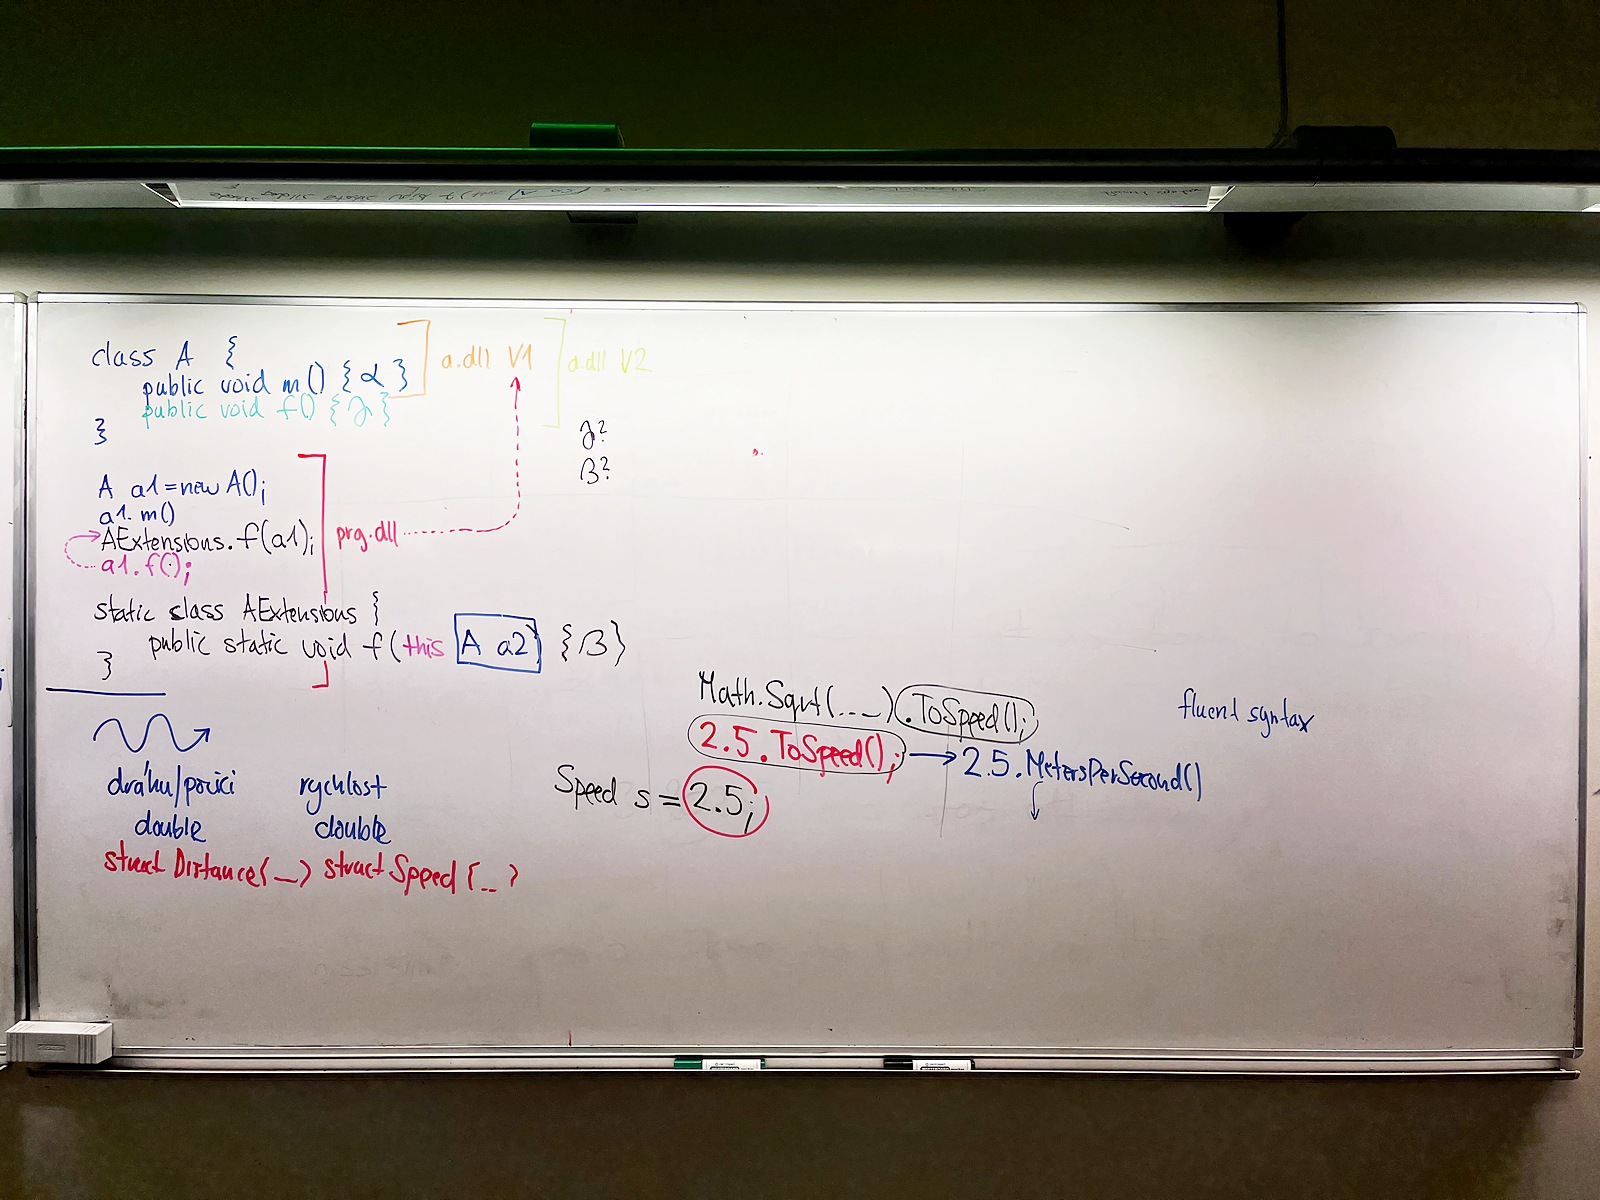 class A {
public void m() { α }
public void f() { γ }
}
a.dll V1
a.dll V2
γ?
β?
A a1 = new A();
a1.m()
AExtensions.f(a1);
a1.f();
prg.dll
static class AExtensions {
public static void f(this A a2) {β}
}
Math.Sqrt(...).ToSpeed();
2.5.ToSpeed(); → 2.5.MetersPerSecond()
Speed s = 2.5;
fluent syntax
dráhu/pozici
double
rychlost
double
struct Distance{...} struct Speed{...}